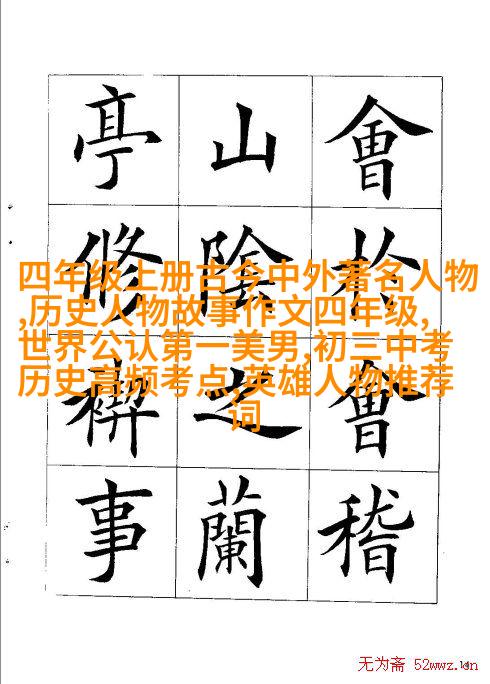 會於會稽
山陰之蘭
亭脩禊事
四年级上册古今中外著名人物
,历史人物故事作文四年级,
世界公认第一美男,初三中考
历史高频考点,英雄人物推荐
词
无为斋 52wwz.cn